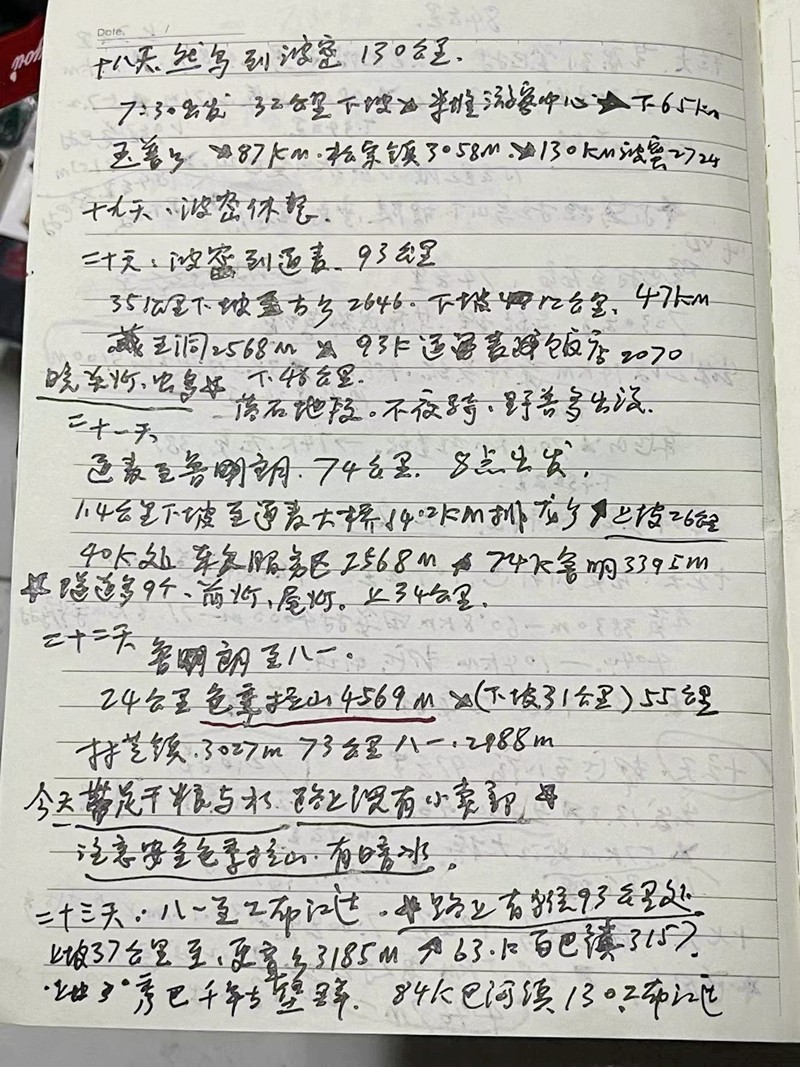 Date. /
十八天.然乌到波密 130公里.
7:30出发 32公里下坡↘米堆游客中心↘下65km
玉普乡 ↘87KM.松宗镇3058M.↘130KM波密2724
十九天.波密休整.
二十天:波密到通麦.93公里
35公里下坡至古乡2646.下坡12公里.47KM
藏王洞2568M ↘ 93K通麦 饭店2070
晚关灯.出多 下46公里.
落石地段.不夜骑.野兽多出没.
二十一天
通麦至鲁朗.74公里.8点出发.
1.4公里下坡至通麦大桥14.2KM排龙乡↗上坡26公里
40K处 服务区2568M ↗74K鲁朗3395M
隧道多9个.前灯、尾灯.上34公里.
二十二天
鲁朗至八一.
24公里色季拉山4569M↘(下坡31公里)55公里
林芝镇.3027m 73公里八一.2988m
今天带足干粮与水 路上没有小卖部
注意安全色季拉山.有暗冰.
二十三天.八一至工布江达.路上有 93公里处
上坡37公里至.更章乡3185M↗63.K百巴镇3157.
巴千年古堡群.84K巴河镇130工布江达